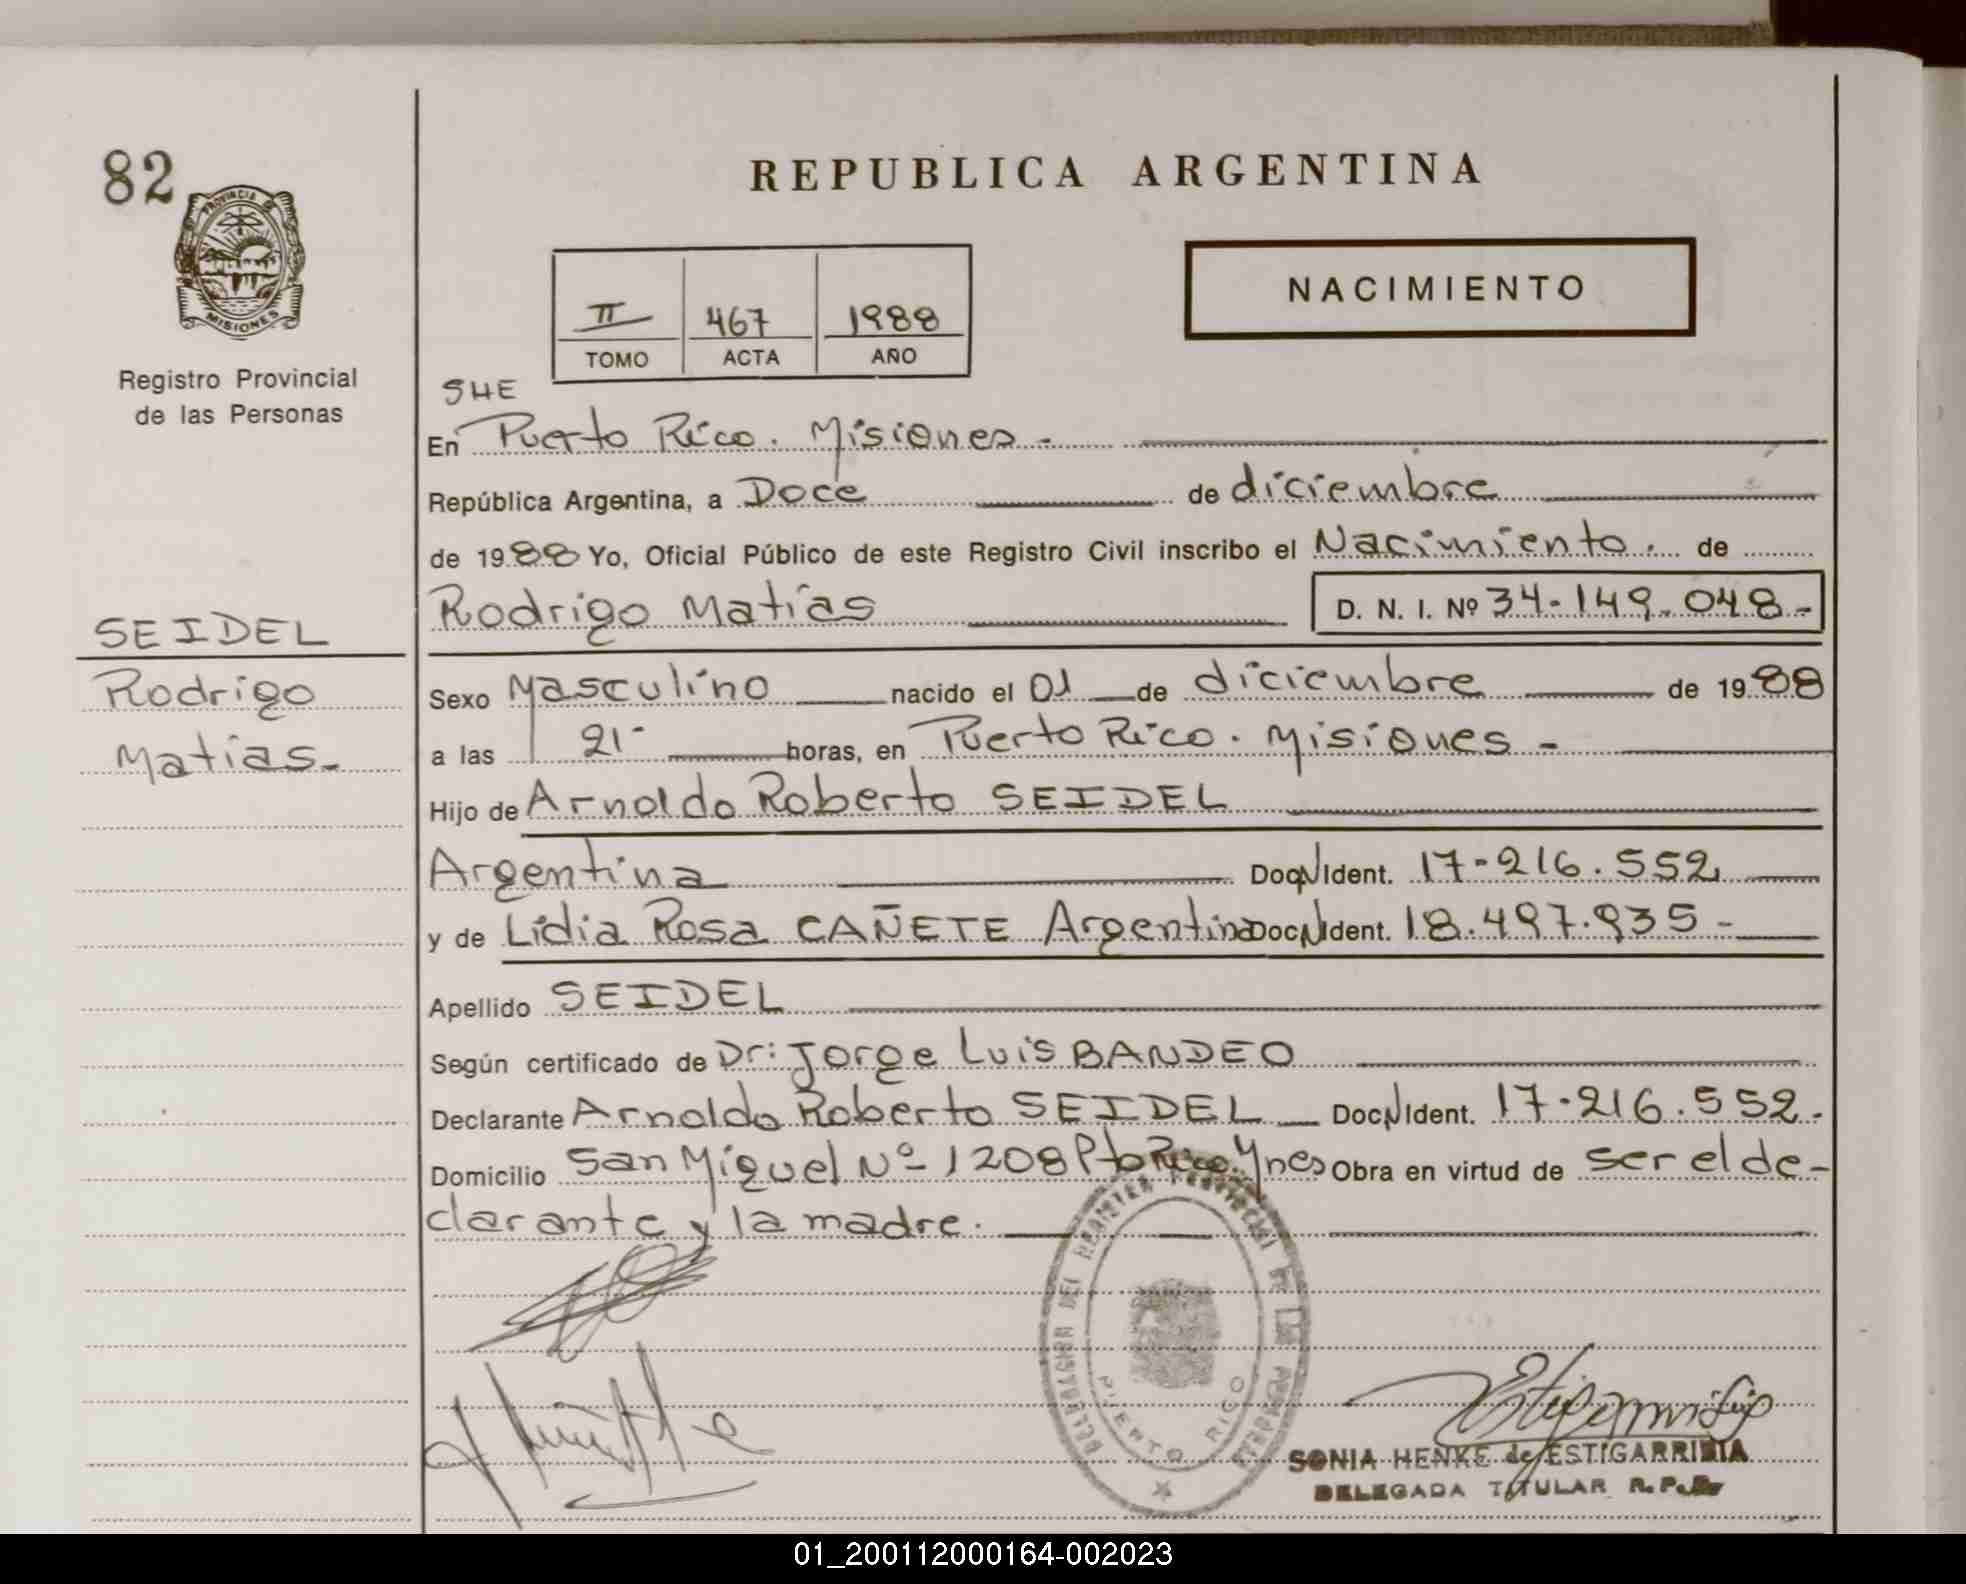 82
PROVINCIA DE
MISIONES
Registro Provincial
de las Personas
SEIDEL
Rodrigo
Matías.-
REPUBLICA ARGENTINA
NACIMIENTO
II 467 1988
TOMO ACTA AÑO
SHE
En Puerto Rico. Misiones.-
República Argentina, a Doce de diciembre
de 1988 Yo, Oficial Público de este Registro Civil inscribo el Nacimiento. de
Rodrigo Matías D. N. I. Nº 34.149.048.-
Sexo Masculino nacido el 01 de diciembre de 1988
a las 21- horas, en Puerto Rico. Misiones -
Hijo de Arnoldo Roberto SEIDEL
Argentina Doc. Ident. 17.216.552
y de Lidia Rosa CAÑETE Argentina Doc. Ident. 18.497.935-
Apellido SEIDEL
Según certificado de Dr: Jorge Luis BANDEO
Declarante Arnoldo Roberto SEIDEL Doc. Ident. 17.216.552.
Domicilio San Miguel Nº 1208 Pto Rico. Mnes Obra en virtud de ser el de-
clarante y la madre.
DELEGACION DEL REGISTRO PROVINCIAL DE LAS PERSONAS
PUERTO RICO
SONIA HENKE de ESTIGARRIBIA
DELEGADA TITULAR R.P.P.
01_200112000164-002023